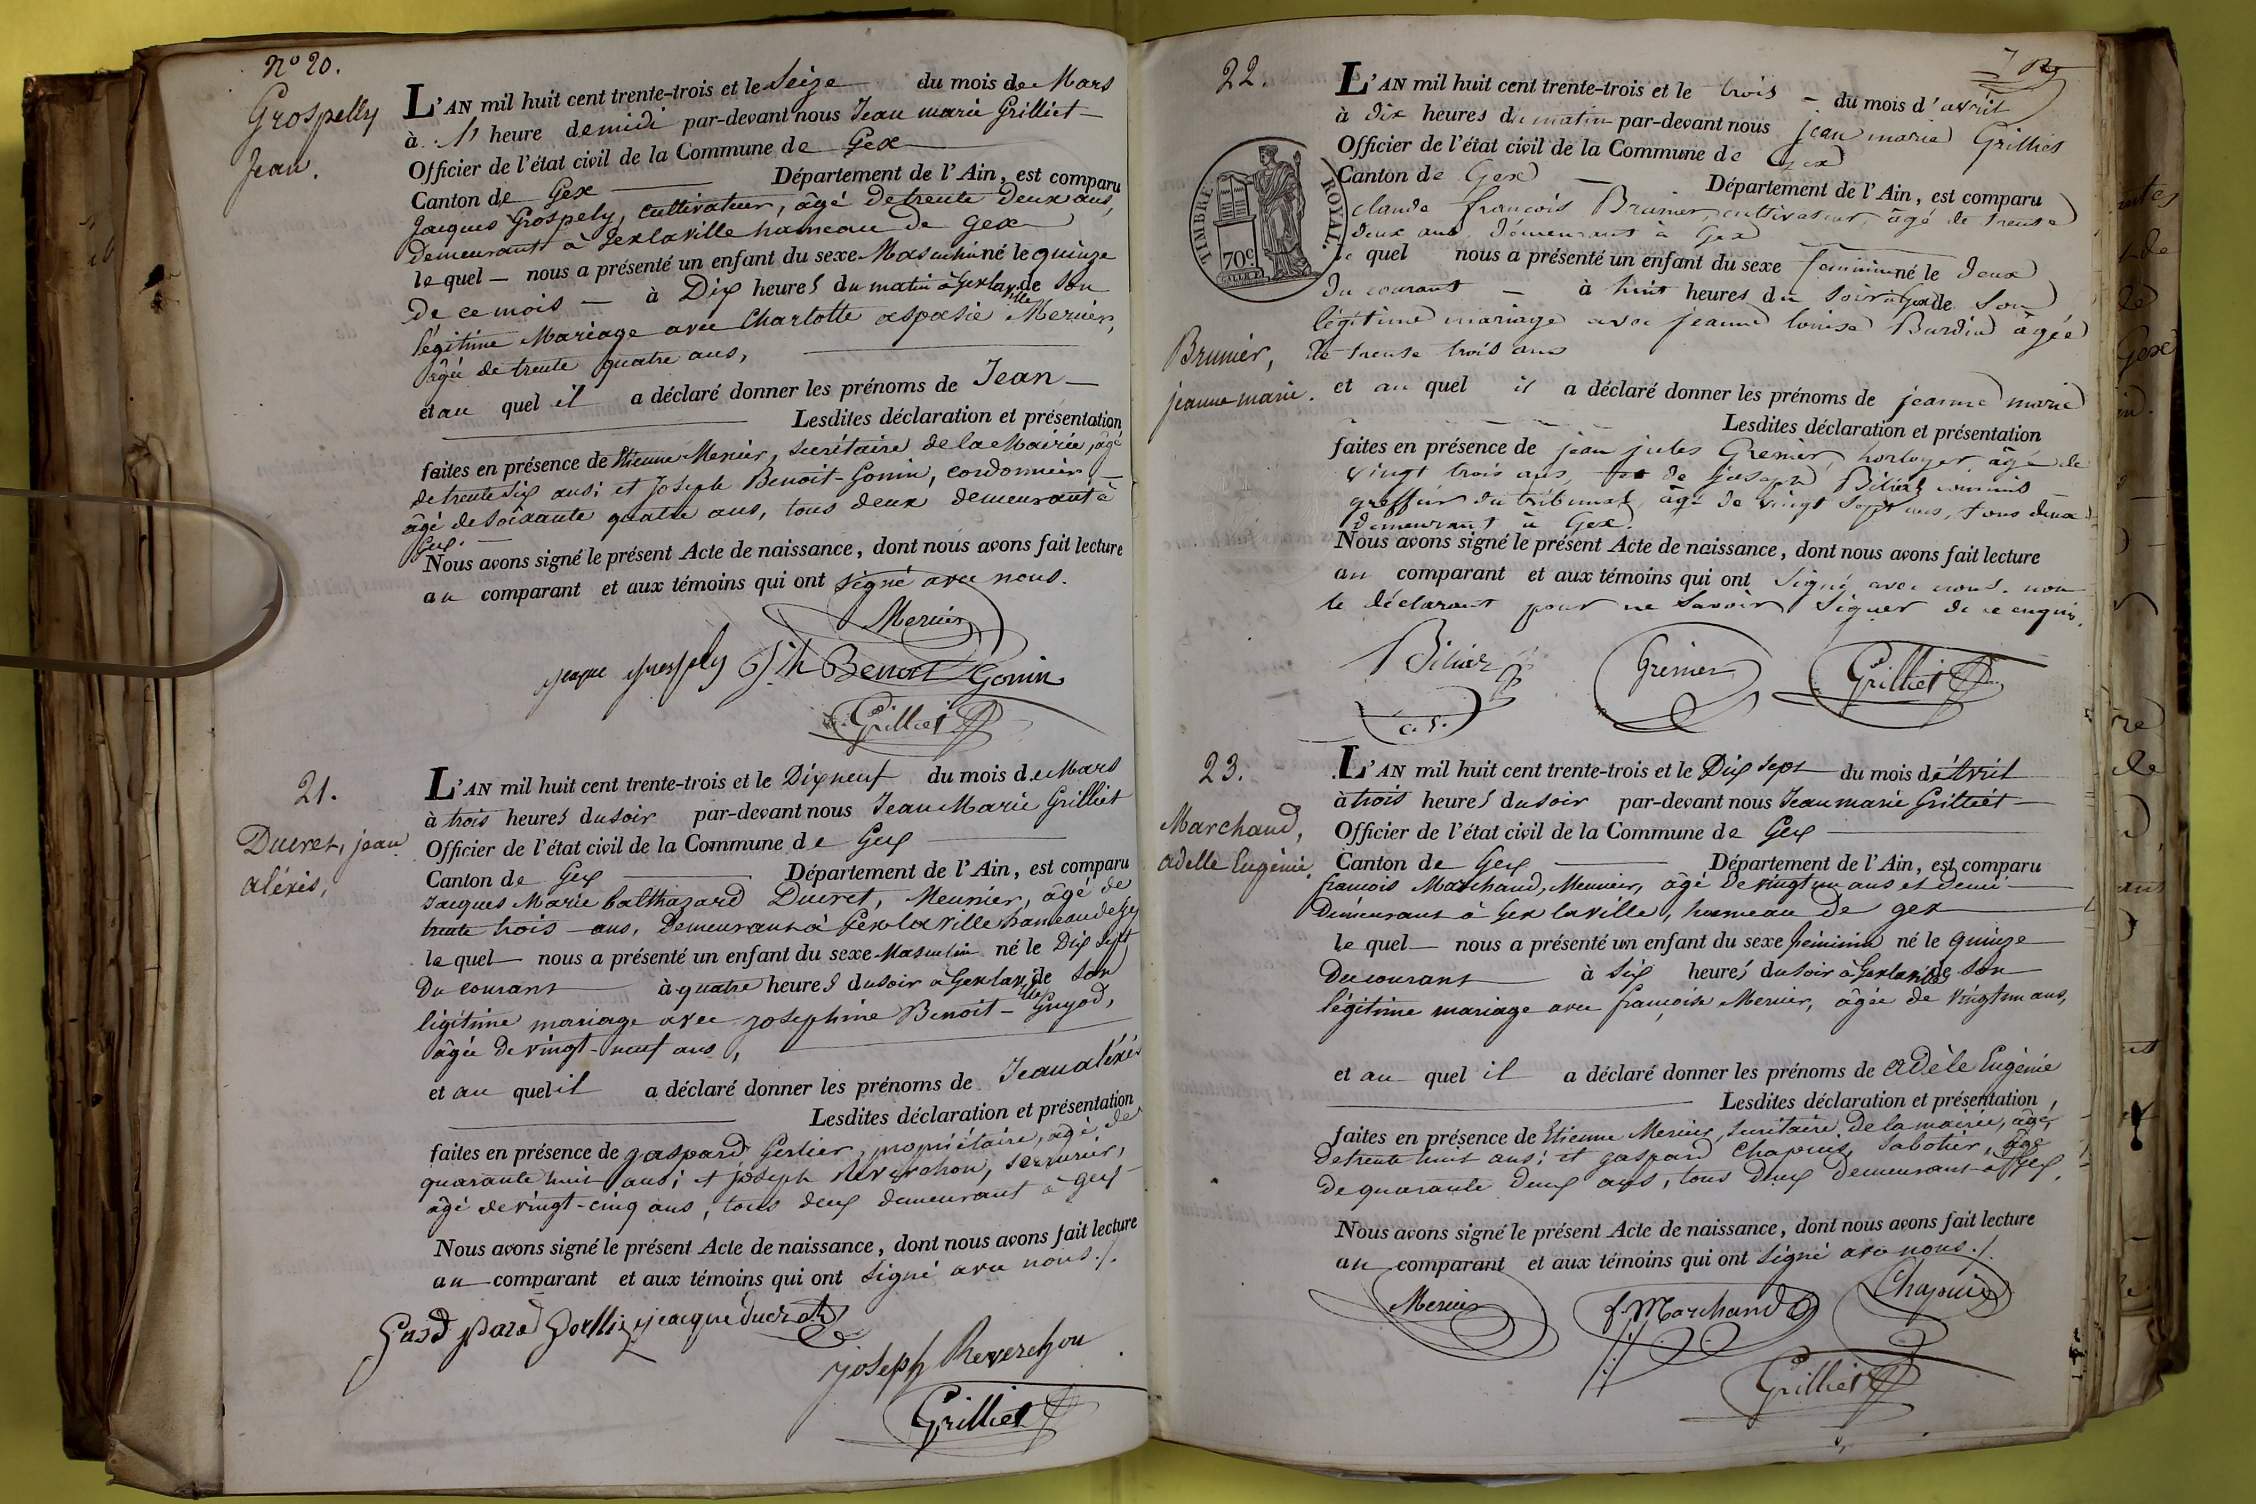 N° 20.
Grospelly
Jean.
L'AN mil huit cent trente-trois et le Seize du mois de Mars
à 1 heure de midi par-devant nous Jean marie Grilliet
Officier de l'état civil de la Commune de Gex
Canton de Gex Département de l'Ain, est comparu
Jacques Grospely, cultivateur, âgé de trente deux ans,
Demeurant à Gexlaville hameau de Gex
le quel nous a présenté un enfant du sexe Masculin né le quinze
de ce mois à Dix heures du matin à Gexlaville de son
légitime Mariage avec Charlotte aspasie Mercier,
âgée de trente quatre ans,
et au quel il a déclaré donner les prénoms de Jean
Lesdites déclaration et présentation
faites en présence de Etienne Mercier, secrétaire de la Mairie, âgé
de trente six ans; et Joseph Benoit-Gonin, cordonnier
âgé de soixante quatre ans, tous deux demeurant à
Gex.
Nous avons signé le présent Acte de naissance, dont nous avons fait lecture
au comparant et aux témoins qui ont signé avec nous.
Mercier
jeaque Grospely Jh Benoit Gonin
Grilliet
21.
Ducret, jean
aléxis,
L'AN mil huit cent trente-trois et le Dix neuf du mois de Mars
à trois heures du soir par-devant nous Jean Marie Grilliet
Officier de l'état civil de la Commune de Gex
Canton de Gex Département de l'Ain, est comparu
Jacques Marie balthazard Ducret, Meunier, âgé de
trente trois ans, Demeurant à Gexlaville hameau de Gex
le quel nous a présenté un enfant du sexe Masculin né le Dix sept
Du courant à quatre heures du soir à Gexlaville de son
légitime mariage avec josephine Benoit-Guyod,
âgée de vingt-neuf ans,
et au quel il a déclaré donner les prénoms de Jean aléxis
Lesdites déclaration et présentation
faites en présence de gaspard Gerlier, propriétaire, âgé de
quarante huit ans; et joseph Reverchon, serrurier,
âgé de vingt-cinq ans, tous deux demeurant à Gex
Nous avons signé le présent Acte de naissance, dont nous avons fait lecture
au comparant et aux témoins qui ont signé avec nous./.
jeacque ducret
joseph Reverchon
Grilliet
22.
TIMBRE ROYAL.
70c.
Brunier,
jeanne marie.
L'AN mil huit cent trente-trois et le trois du mois d'avril
à dix heures du matin par-devant nous jean marie Grilliet
Officier de l'état civil de la Commune de Gex
Canton de Gex Département de l'Ain, est comparu
claude françois Brunier, cultivateur, âgé de trente
deux ans, demeurant à Gex
le quel nous a présenté un enfant du sexe feminin né le deux
du courant à huit heures du soir à Gex de son
légitime mariage avec jeanne louise Burdin âgée
de trente trois ans
et au quel il a déclaré donner les prénoms de jeanne marie
Lesdites déclaration et présentation
faites en présence de jean jules Grenier, horloger, âgé de
vingt trois ans, de joseph commis
greffier du tribunal, âgé de vingt sept ans, tous deux
demeurant à Gex.
Nous avons signé le présent Acte de naissance, dont nous avons fait lecture
au comparant et aux témoins qui ont signé avec nous. non
le déclarant pour ne savoir signer de ce enquis.
Grenier Grilliet
c. g.
23.
Marchand,
adelle Eugénie.
L'AN mil huit cent trente-trois et le Dix sept du mois d'avril
à trois heures du soir par-devant nous Jean marie Grilliet
Officier de l'état civil de la Commune de Gex
Canton de Gex Département de l'Ain, est comparu
françois Marchand, Meunier, âgé de vingt un ans et demi
Demeurant à Gex laville, hameau de gex
le quel nous a présenté un enfant du sexe féminin né le quinze
Du courant à six heures du soir à Gexlaville de son
légitime mariage avec françoise Mercier, âgée de vingt un ans,
et au quel il a déclaré donner les prénoms de adèle Eugénie
Lesdites déclaration et présentation,
faites en présence de Etienne Mercier, secrétaire de la mairie, âgé
de trente huit ans; et gaspard Chapuis, Sabotier, âgé
de quarante deux ans, tous deux demeurant à Gex,
Nous avons signé le présent Acte de naissance, dont nous avons fait lecture
au comparant et aux témoins qui ont signé avec nous./.
Mercier f. Marchand Chapuis
Grilliet